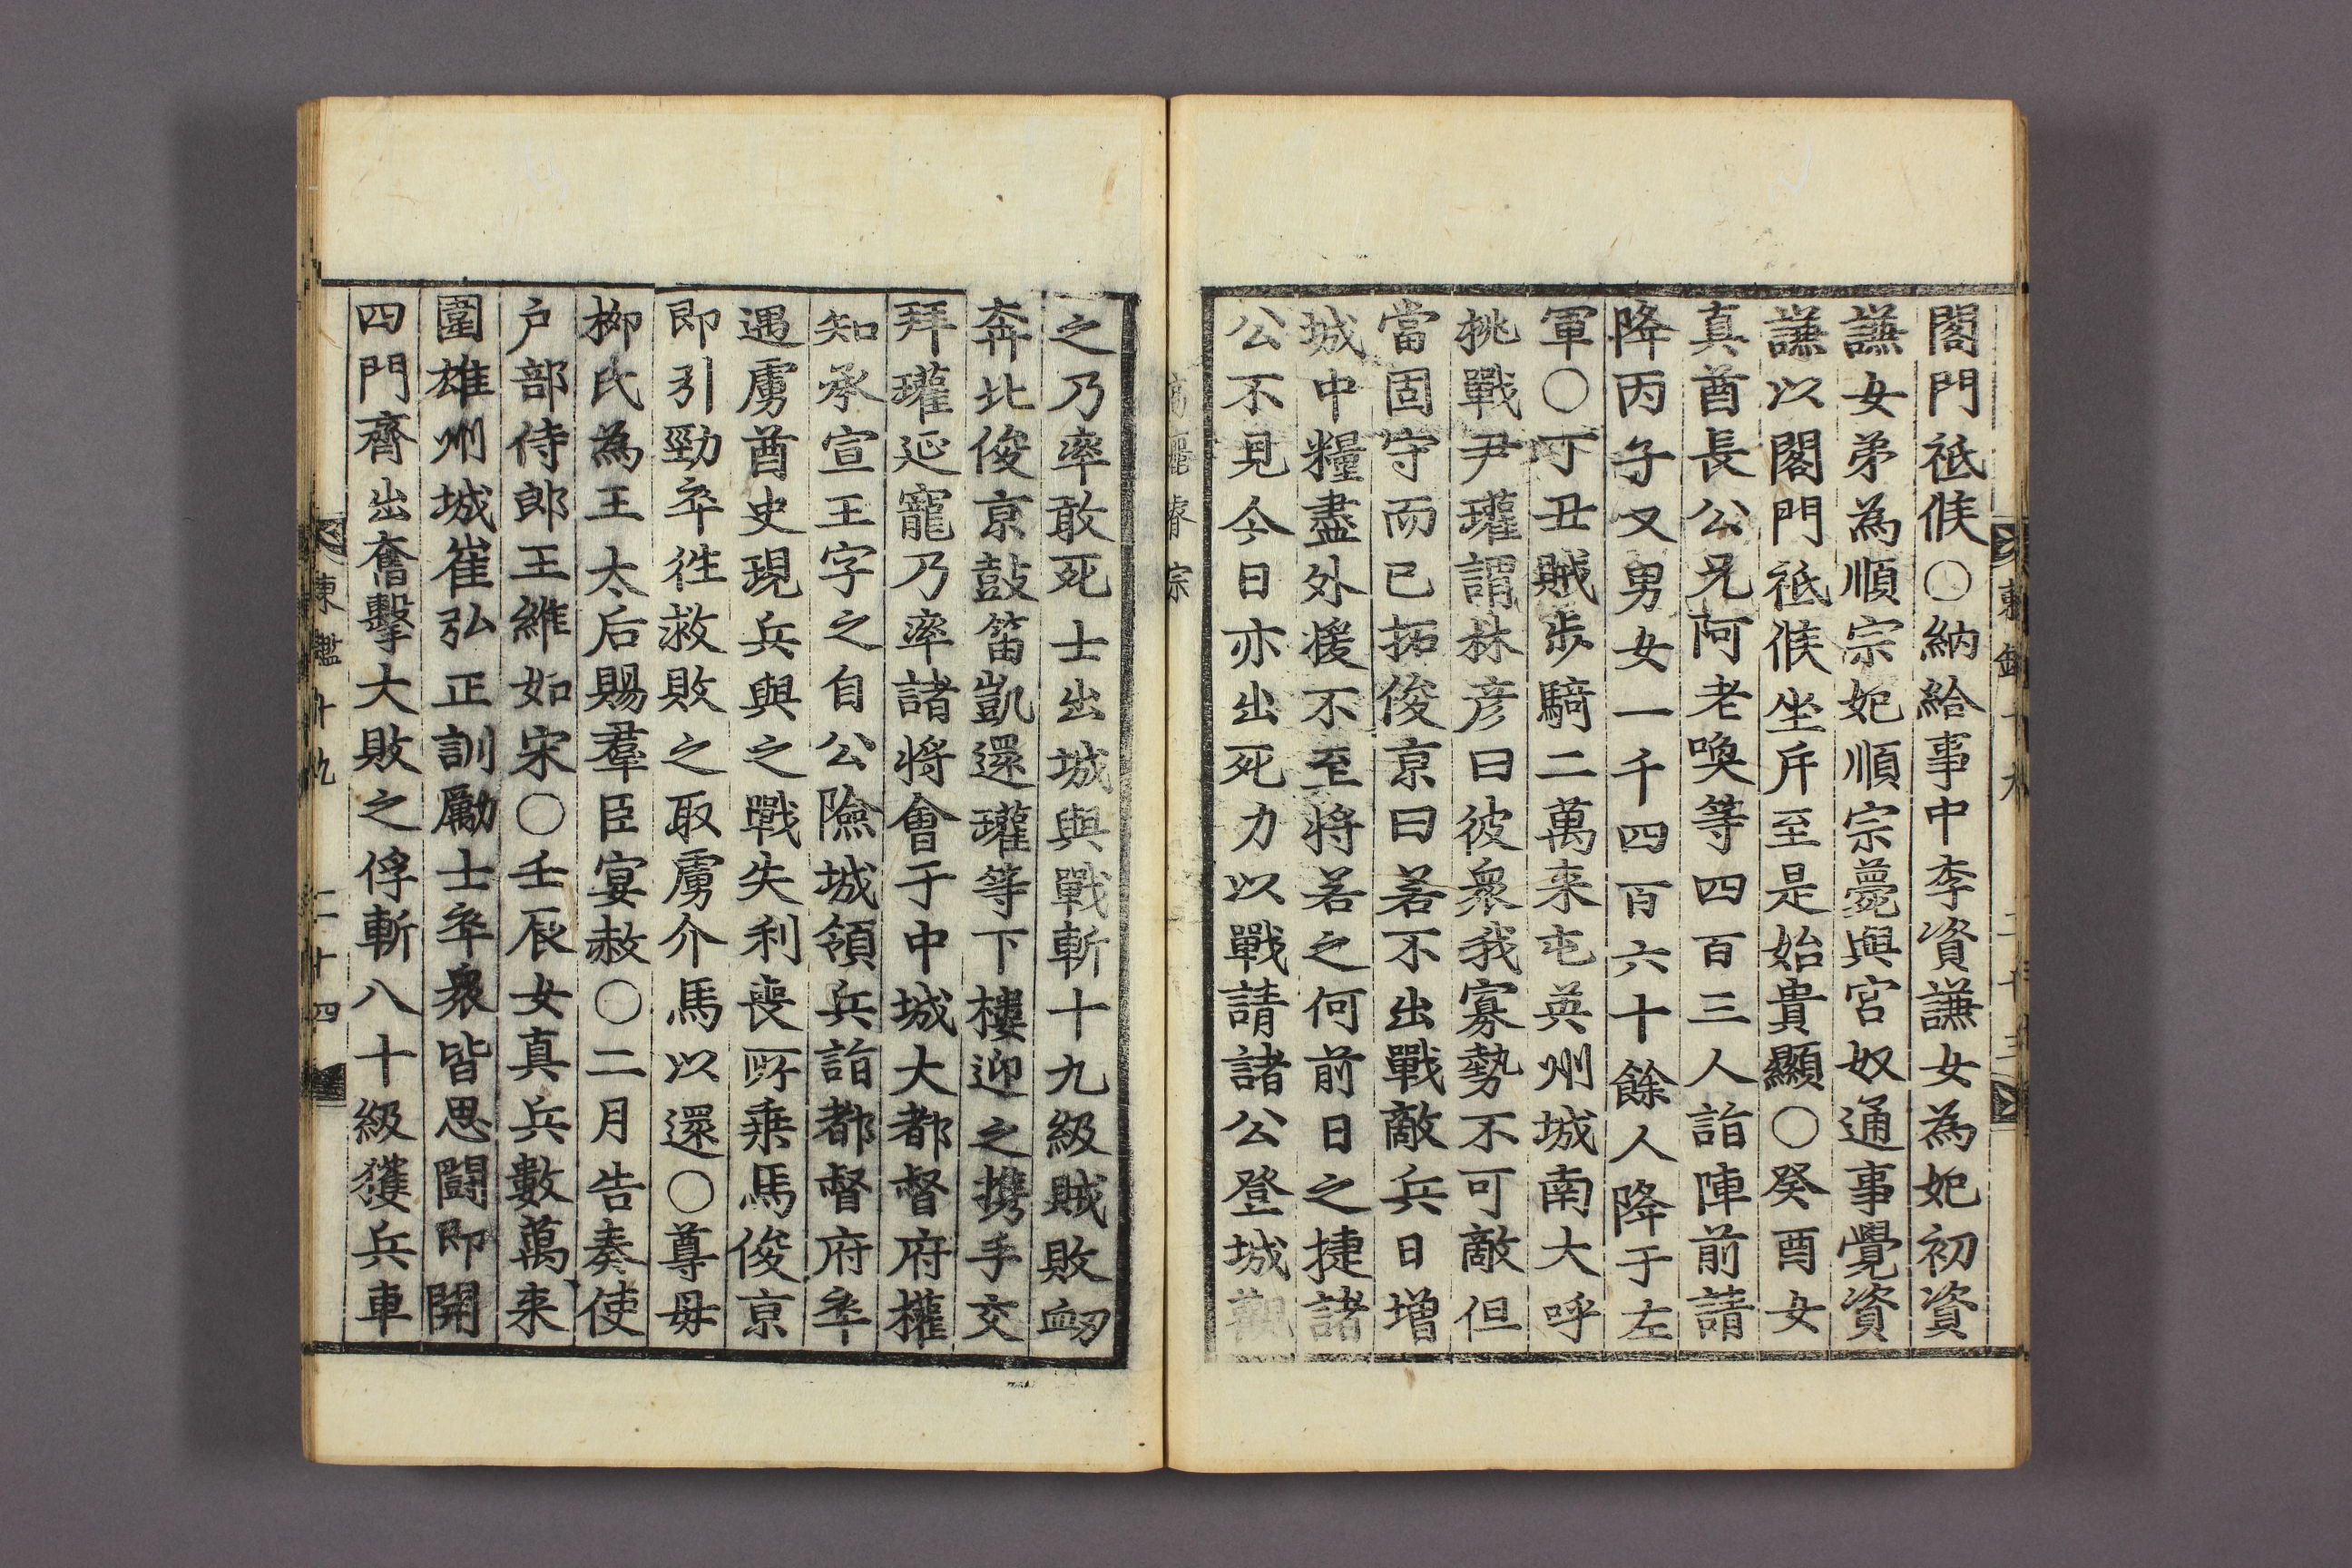 閣門祗候○納給事中李資謙女為妃初資
謙女弟為順宗妃順宗薨與宮奴通事覺資
謙以閣門祗候坐斥至是始貴顯○癸酉女
真酋長公兄阿老喚等四百三人詣陣前請
降丙子又男女一千四百六十餘人降于左
軍○丁丑賊步騎二萬来屯英州城南大呼
挑戰尹瓘謂林彦曰彼衆我寡勢不可敵但
當固守而已拓俊京曰若不出戰敵兵日增
城中糧盡外援不至將若之何前日之捷諸
公不見今日亦出死力以戰請諸公登城觀
高麗睿宗
之乃率敢死士出城與戰斬十九級賊敗衂
奔北俊京鼓笛凱還瓘等下樓迎之携手交
拜瓘延寵乃率諸將會于中城大都督府權
知承宣王字之自公險城領兵詣都督府卒
遇虜酋史現兵與之戰失利喪所乗馬俊京
即引勁卒徃救敗之取虜介馬以還○尊母
柳氏為王太后賜羣臣宴赦○二月告奏使
户部侍郎王維如宋○壬辰女真兵數萬来
圍雄州城崔弘正訓勵士卒衆皆思鬪即開
四門齊出奮擊大敗之俘斬八十級獲兵車
東鑑十九 二十四